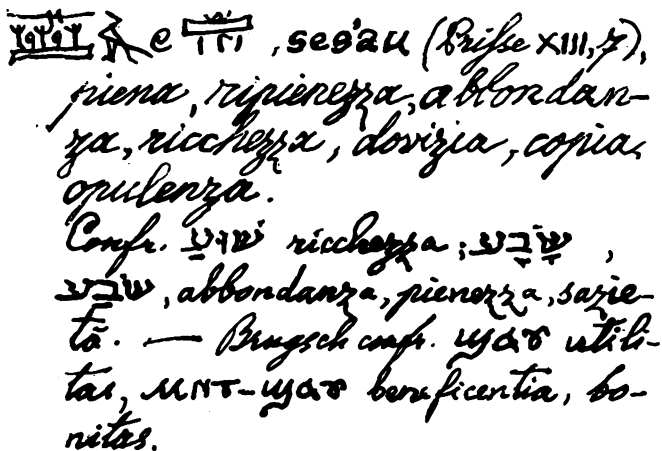 e , ses'au (Prisse XIII, 7),
piena, ripienezza, abbondan-
za, ricchezza, dovizia, copia,
opulenza.
Confr. שׁוּעַ ricchezza; שָׂבָע ,
שֹׂבַע, abbondanza, pienezza, sazie-
tà. — Brugsch confr. ϣⲁⲩ utili-
tas, ⲙⲛⲧ-ϣⲁⲩ beneficentia, bo-
nitas.